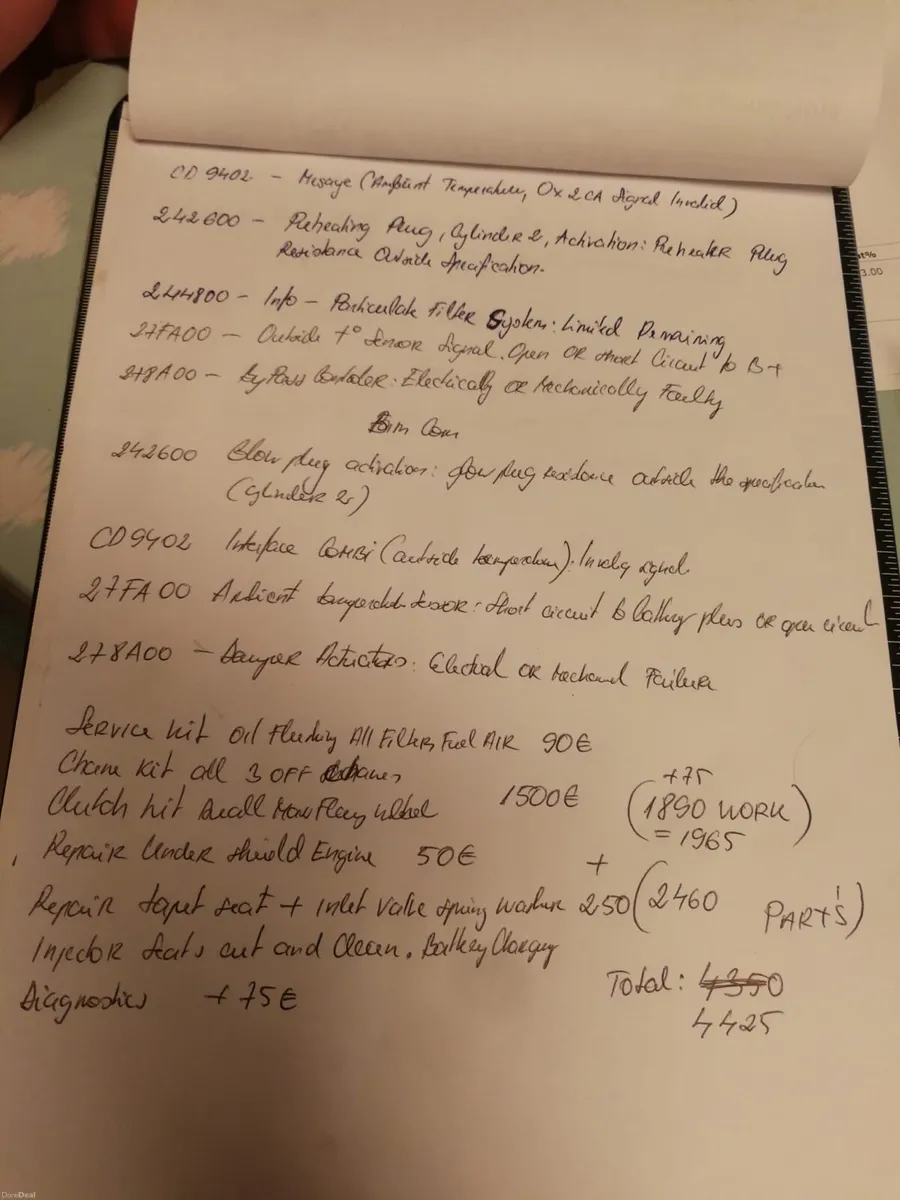 CD 9402 - Mesage (Ambient Temperature, 0x2CA Signal Invalid)
242600 - Preheating Plug, Cylinder 2, Activation: Preheater Plug
Resistance Outside Specification.
244800 - Info - Particulate Filter System: Limited Remaining
27FA00 - Outside t° Sensor Signal. Open OR short Circuit to B+
278A00 - By Pass Controler: Electrically or Mechanically Faulty
Com
242600 Glow plug activation: glow plug resistance outside the specification
(Cylinder 2)
CD9402 Interface COMBI (outside temperature). signal
27FA00 Ambient temperature sensor: Short circuit to battery plus OR open circuit
278A00 - Damper Actuators: Electrical OR Mechanical Failure
Service kit Oil Flushing All Filters Fuel AIR 90€
Chane Kit all 3 OFF chanes
Clutch kit Mass Flay Wheel 1500€
+75
(1890 WORK)
= 1965
Repair Under shield Engine 50€
+
Repair tapet seat + inlet valve spring washer 250 (2460 PART'S)
Injector Seats cut and Clean. Battery Charging
Diagnostics +75€
Total: 4350
4425
3.00
DoneDeal